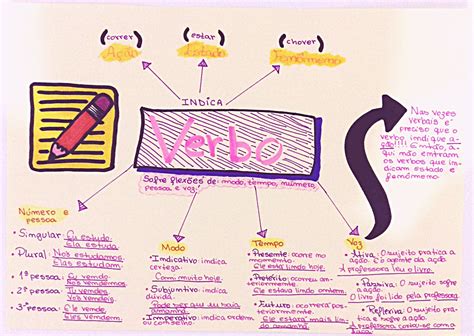 (correr)
Ação
(estar)
Estado
(chover)
Fenômeno
INDICA
Verbo
Sofre flexões de: modo, tempo, número,
pessoa e voz.
Nas vozes
verbais é
preciso que o
verbo indique a-
ção!!! Então, a-
qui não entram
os verbos que in-
dicam estado e
fenômeno
Número e
pessoa
• Singular: Eu estudo.
Ela estuda.
• Plural: Nós estudamos.
Elas estudam.
• 1ª pessoa: Eu vendo.
Nós vendemos
• 2ª pessoa: Tu vendes
Vós vendeis
• 3ª pessoa: Ele vende.
Eles vendem.
Modo
• Indicativo: indica
certeza.
Comi muito hoje.
• Subjuntivo: indica
dúvida.
Pode ser que eu
amanhã.
• Imperativo: indica ordem
ou conselho.
Tempo
• Presente: ocorre no
momento.
Ele está lindo hoje.
• Pretérito: ocorreu an-
teriormente.
Ele estava lindo ontem.
• Futuro: ocorrerá pos-
teriormente.
Ele estará mais lin-
do amanhã.
Voz
• Ativa: O sujeito pratica a
ação. É o agente da ação.
A professora leu o livro.
• Passiva: O sujeito sofre
a ação.
O livro foi lido pela professora.
• Reflexiva: O sujeito pra-
tica e sofre a ação.
A professora